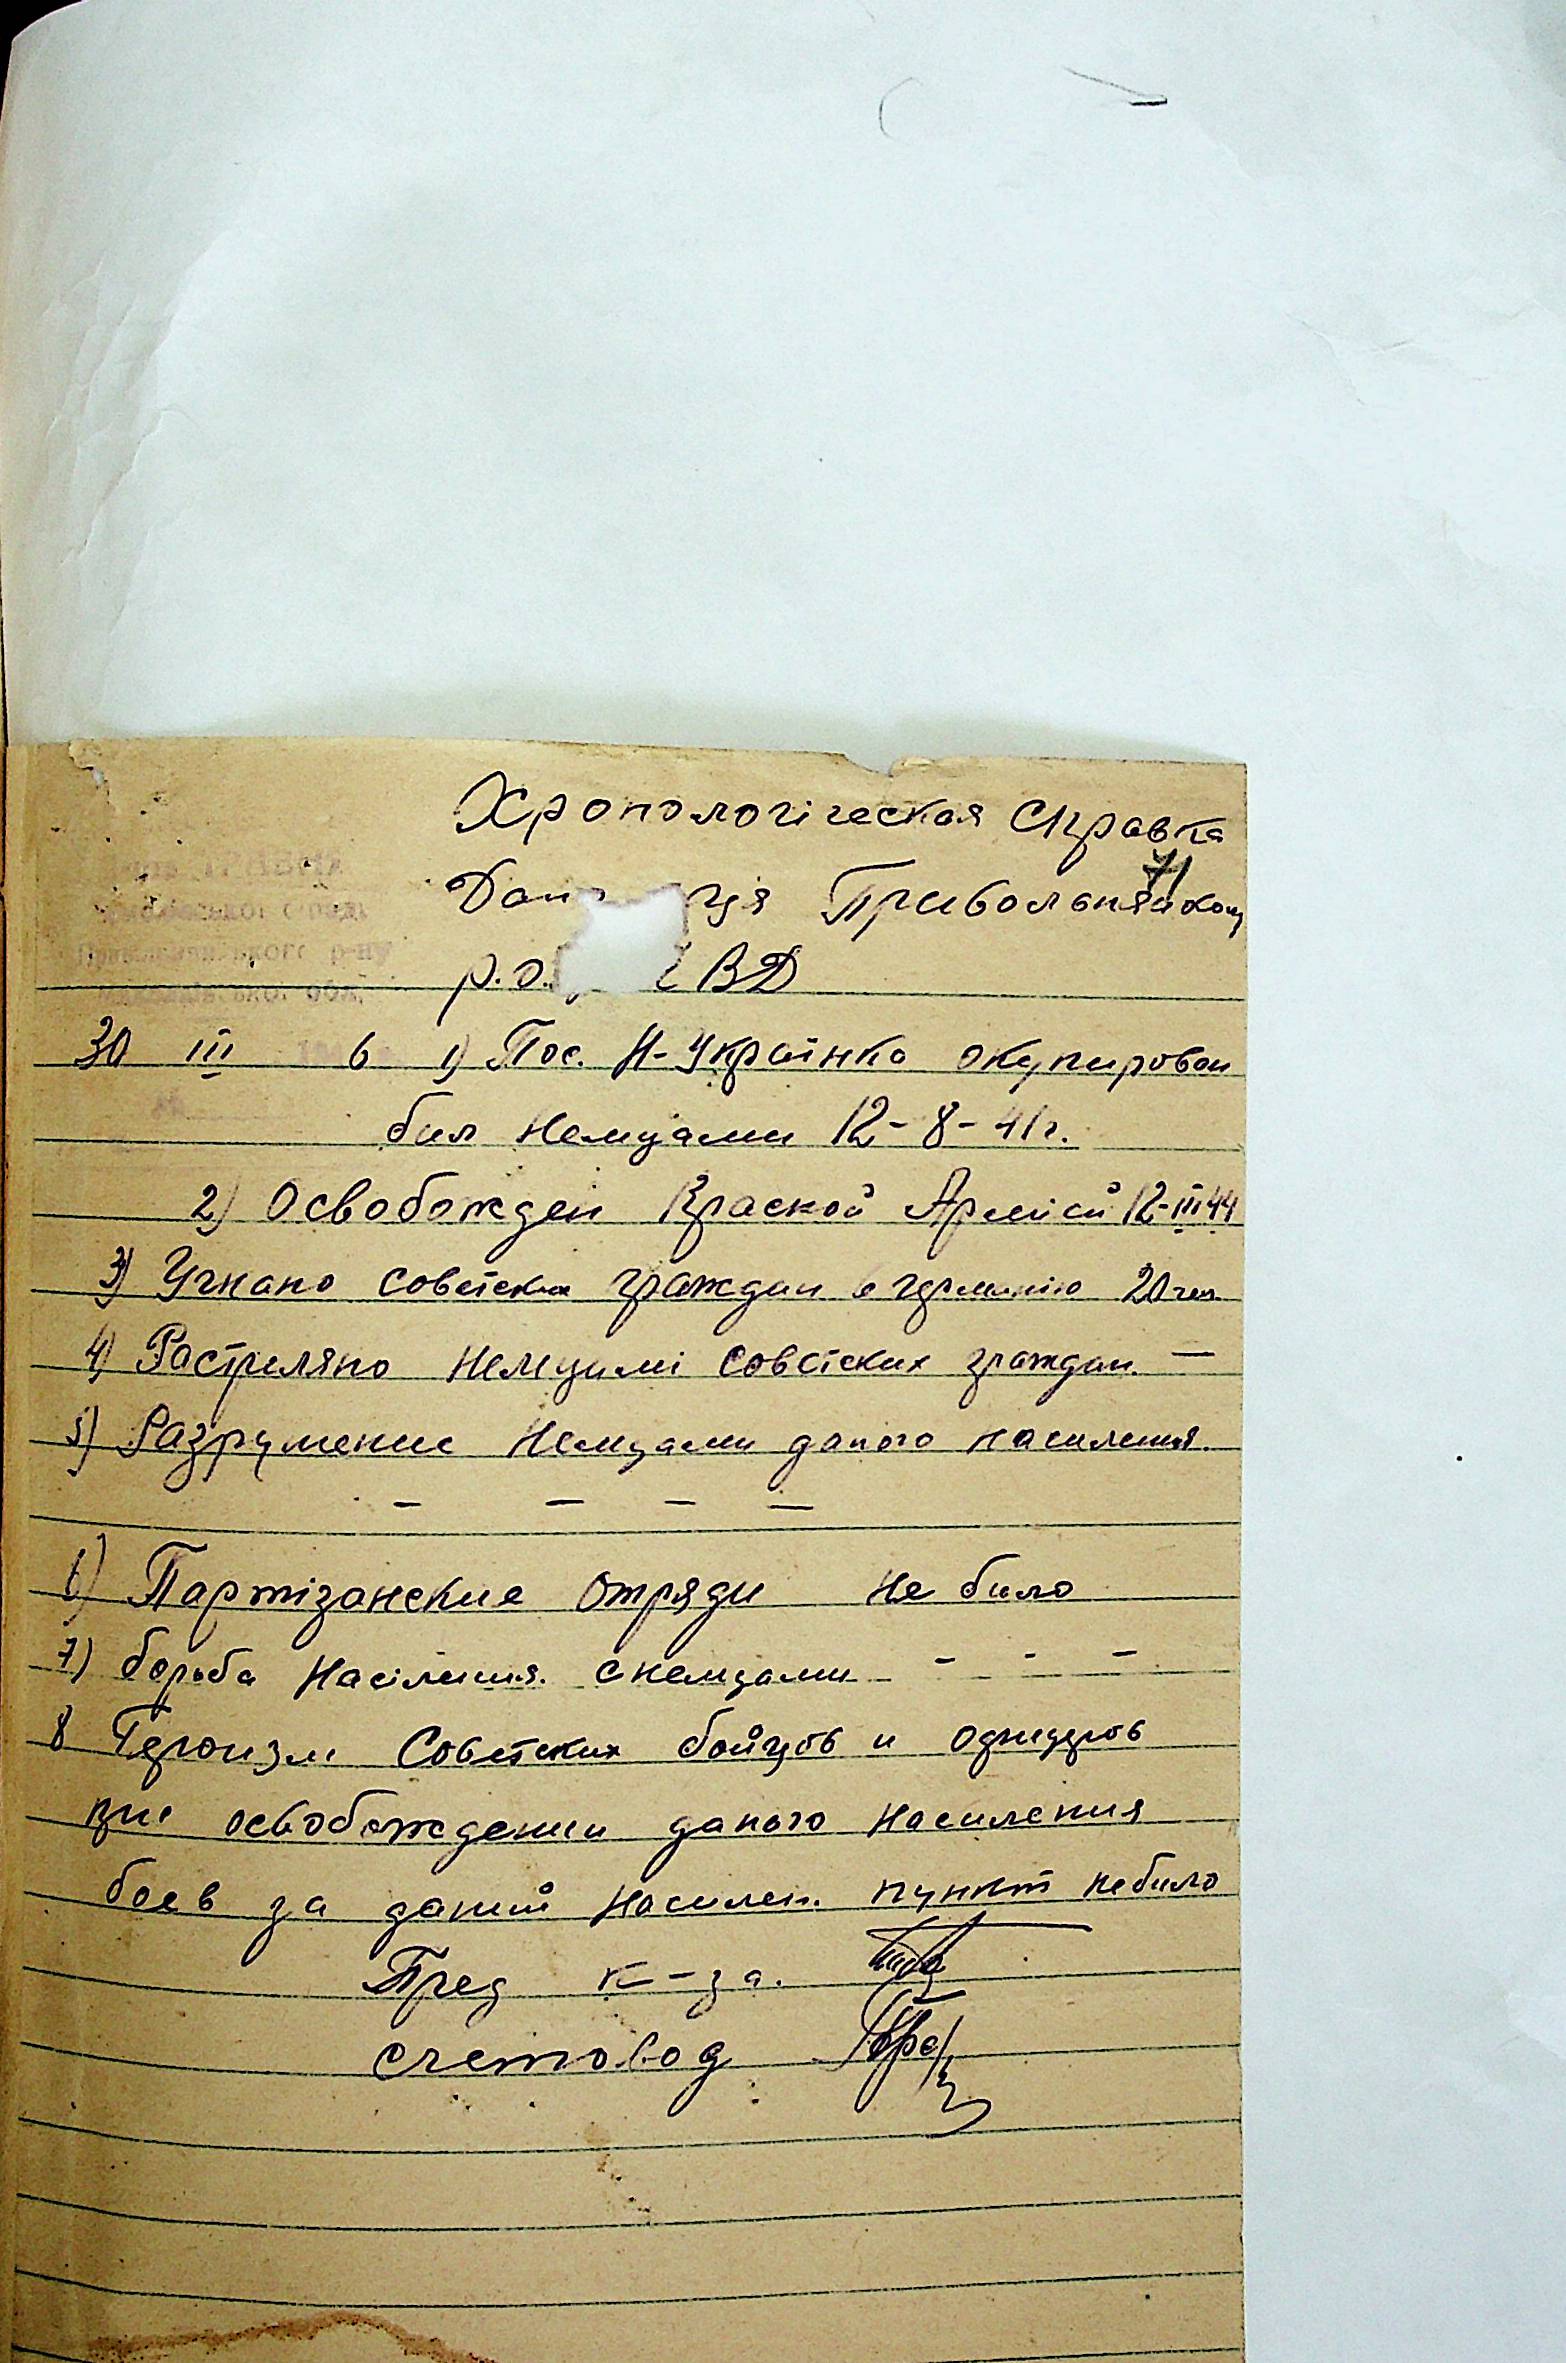 Хронологіческая Справка
71
Дан ця Привольнянскому
р.о. ВД
р-ну
обл.
30 III 6 1) Пос. Н-Украінка окупирован
бил немцами 12-8-41г.
2) Освобожден Краской Армієй 12-III 44
3) Угнано советских граждан в германію 20 чел
4) Растриляно немцимі советских граждан. —
5) Разрушение немцами даного насиления.
— — — —
6) Партізанские отряди не било
7) борьба насіления. с немцами - - -
8 Героизм Советских бойцов и официров
при освобождении даного насиления
боев за даний насилен. пункт небило
Пред к-за.
счетовод